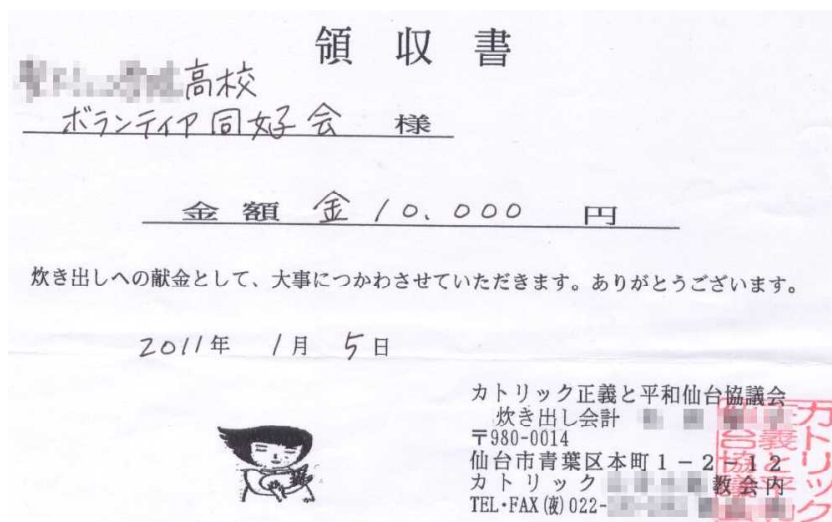 領 収 書
高校
ボランティア同好会 様
金 額 金 10,000 円
炊き出しへの献金として、大事につかわさせていただきます。ありがとうございます。
2011年 1月 5日
カトリック正義と平和仙台協議会
炊き出し会計
〒980-0014
仙台市青葉区本町1-2-12
カトリック 教会内
TEL・FAX(夜)022-